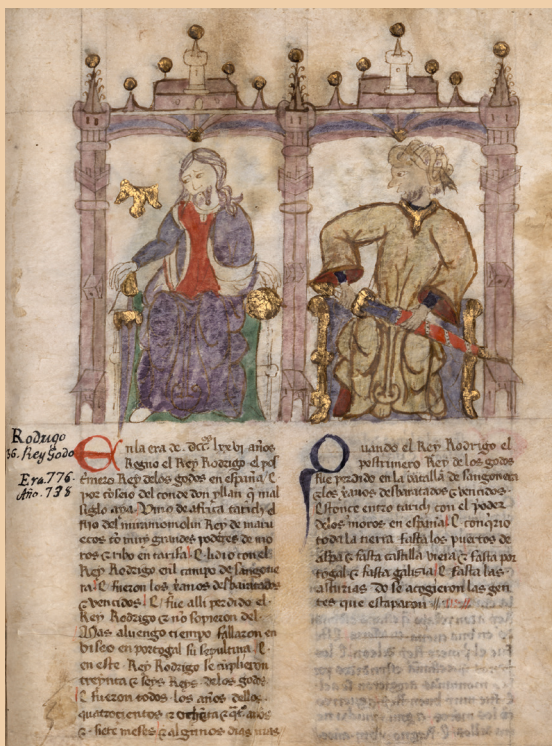 Rodrigo
36. Rey Godo
Era. 776.
Año. 738
En la era de. dcc.º lxxvi. años
Regno el Rey Rodrigo. el pos
trimero Rey. delos godos en españa. E
por conseio del conde don yllan q mal
siglo aya. Vino de africa tarich. el
fijo del miramomolin Rey de marru
ecos cō muy grandes poderes de mo
ros & aribo en tarifa. E lidio con el
Rey Rodrigo enl canpo de sangone
ra. E fueron los xanos desbaratados
& vençidos. E fue alli perdido el.
Rey Rodrigo & no sopieron del.
Mas aluengo tiempo fallaron en
viseo en portogal su sepultura. E.
en este. Rey Rodrigo se cūplieron
treynta & seys Reys. delos godos
E fueron todos. los años dellos.
quatroçientos & ochēta & años
&. siete meses & algunos dias mas
Quando el Rey Rodrigo el
postrimero Rey de los godos
fue perdido en la batalla de sangonera
& los xanos desbaratados & vençidos.
Estonçe entro tarich con el poder
delos moros en españa. E conqrio
toda la tierra fasta los puertos de
aspa & fasta castilla vieia & fasta por
togal & fasta galisia. E fasta las
asturias do se acogieron las gen
tes que escaparon